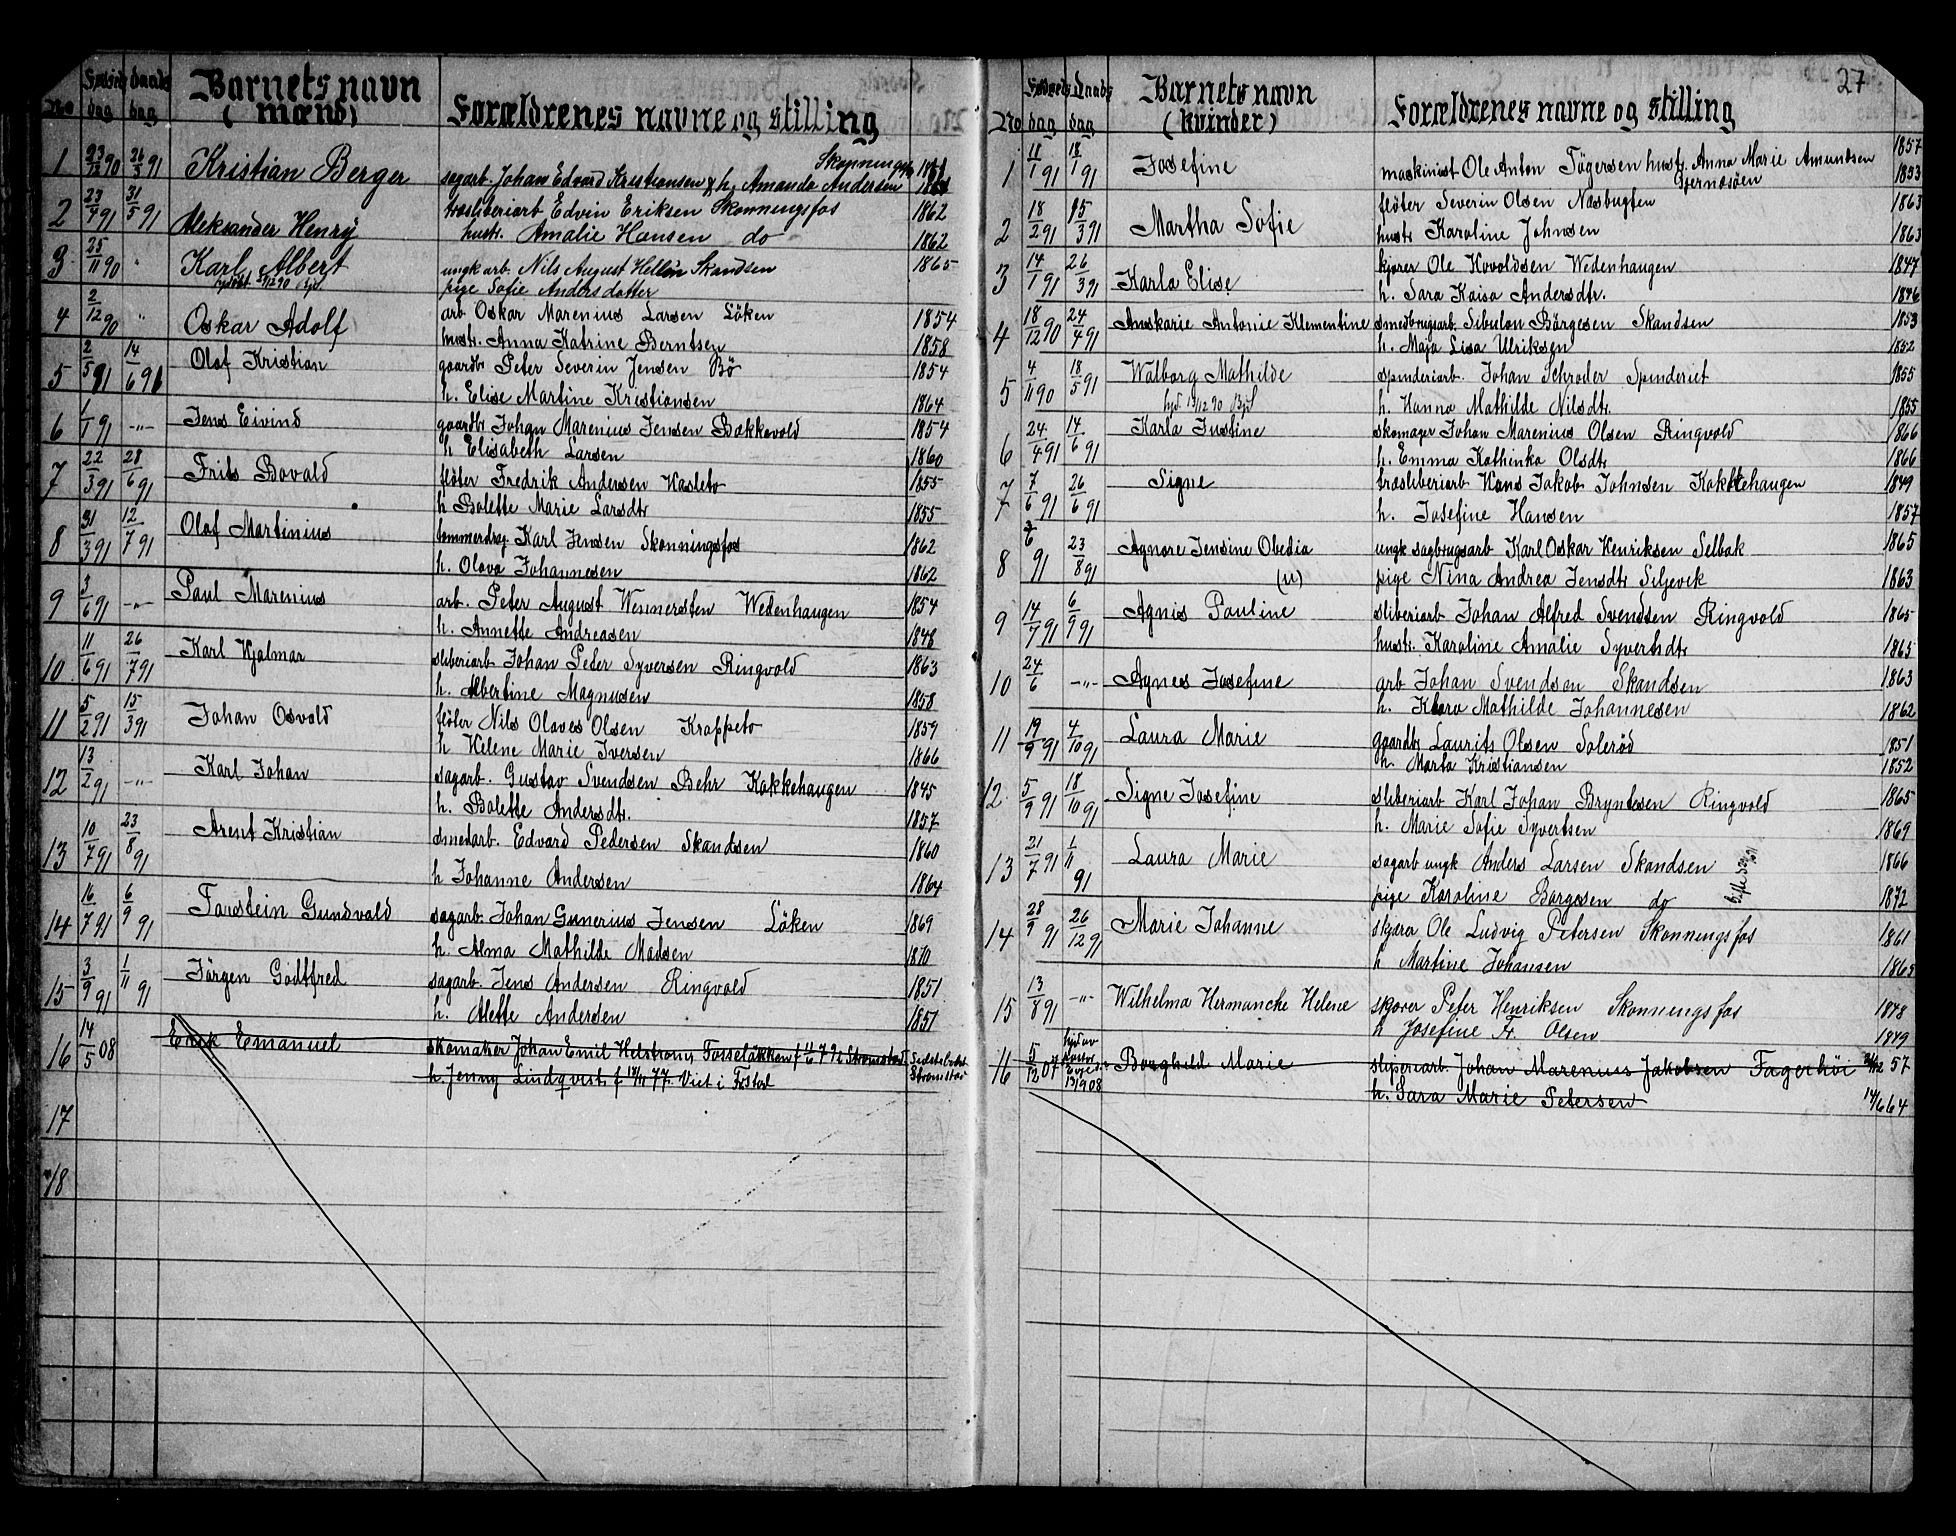 27
No Fødsels dag Daabs dag Barnets navn (mænd) Forældrenes navne og stilling
1 23/12 90 26/3 91 Kristian Berger sagarb. Johan Edvard Kristiansen & h. Amanda Andersen Skonningsfos
2 23/4 91 31/5 91 Aleksander Henry træsliberiarb Edvin Eriksen Skonningsfos 1862
hustr. Amalie Hansen do 1862
3 25/11 90 " Karl Albert ungk arb. Nils August Hellin Skandsen 1865
pige Sofie Andersdatter
4 2/12 90 " Oskar Adolf arb Oskar Marenius Larsen Löken 1854
hustr. Anna Katrine Berntsen 1858
5 2/5 91 14/6 91 Olaf Kristian gaardbr Peter Severin Jensen Bö 1854
h. Elise Martine Kristiansen 1864
6 1/1 91 -"- Jens Eivind gaardbr Johan Marenius Jensen Bakkevold 1854
h Elisabeth Larsen 1860
7 22/3 91 28/6 91 Frits Bovald flöter Fredrik Andersen Hasleto 1855
h Bolette Marie Larsdtr 1855
8 31/3 91 12/7 91 Olaf Martinius tommerdrag Karl Jensen Skonningsfos 1862
h. Olava Johannesen 1862
9 3/6 91 -"- Paul Marenius arb. Peter August Wennersten Wedenhaugen 1854
h. Annette Andreasen 1848
10. 11/6 91 26/7 91 Karl Hjalmar sliberiarb Johan Peter Syversen Ringvold 1863
h. Albertine Magnusen 1858
11 5/2 91 15/3 91 Johan Osvald flöter Nils Olaves Olsen Krappeto 1859
h Helene Marie Iversen 1866
12 13/2 91 -"- Karl Johan sagarb. Gustav Svendsen Behr Kakkehaugen 1845
h. Bolette Andersdtr. 1857
13 10/7 91 23/8 91 Arent Kristian smedarb. Edvard Pedersen Skandsen 1860
h Johanne Andersen 1864
14 16/7 91 6/9 91 Torstein Gundvald sagarb. Johan Gunerius Jensen Löken 1869
h. Alma Mathilde Madsen 1870
15 3/9 91 1/11 91 Jörgen Godtfred sagarb. Jens Andersen Ringvold 1851
h. Alette Andersen 1851
16 14/5 08 Erik Emanuel skomaker Johan Emil Helström, Fosseløkken f 11/6 72 Strömstad
h. Jenny Lindqvist f 13/11 77. Viet i F.stad Strömstad
17
18
No Fødsels dag Daabs dag Barnets navn (kvinder) Forældrenes navne og stilling
1 18/1 91 18/1 91 Josefine maskinist Ole Anton Tögersen hustr. Anna Marie Amundsen 1857 1853
2 18/2 91 15/3 91 Martha Sofie flöter Severin Olsen Næsbugten 1863
hustr Karoline Johnsen 1863
3 14/1 91 26/3 91 Karla Elise kjører Ole Hovoldsen Wedenhaugen 1847
h. Sara Kaisa Andersdtr. 1846
4 18/12 90 24/4 91 Anskarie Antonie Klementine smedbrugsarb. Sibulon Börgesen Skandsen 1853
h. Maja Lisa Ulriksen 1852
5 4/11 90 18/5 91 Walborg Mathilde spinderiarb. Johan Schroder Spinderiet 1855
h. Hanna Mathilde Nilsdtr. 1855
6 24/4 91 14/6 91 Karla Justine skomager Johan Marenius Olsen Ringvold 1866
h. Emma Kathinka Olsdtr 1866
7 7/6 91 26/6 91 Signe træsliberiarb Hans Jakob Johnsen Kakkehaugen 1849
h. Josefine Hansen 1857
8 91 23/8 91 Agnore Jensine Obedia (u) ungk sagbrugsarb Karl Oskar Henriksen Selbak 1865
pige Nina Andrea Jensdtr Siljevik 1863
9 14/7 91 6/9 91 Agnis Pauline sliberiarb Johan Alfred Svendsen Ringvold 1865
hustr. Karoline Amalie Syvertsdtr 1865
10 24/6 -"- Agnes Josefine arb Johan Svendsen Skandsen 1863
h. Klara Mathilde Johannesen 1862
11 19/9 91 4/10 91 Laura Marie gaardbr Laurits Olsen Solerød 1851
h. Marta Kristiansen 1852
12. 5/9 91 18/10 91 Signe Josefine sliberiarb Karl Johan Bryntesen Ringvold 1865
h. Marie Sofie Syvertsen 1869
13 21/7 91 1/11 91 Laura Marie sagarb ungk Anders Larsen Skandsen 1866
pige Karoline Borgesen do 1872
14 28/9 91 26/12 91 Marie Johanne skjøra Ole Ludvig Petersen Skonningsfos 1861
h Martine Johansen 1865
15 13/8 91 -"- Wilhelma Hermancke Helene skjører Peter Henriksen Skonningsfos 1848
h Josefine Fr. Olsen 1849
16 5/12 07 Borghild Marie sliperiarb. Johan Marenius Jakobsen Fagerhöi 57
h. Sara Marie Petersen 14/6 64